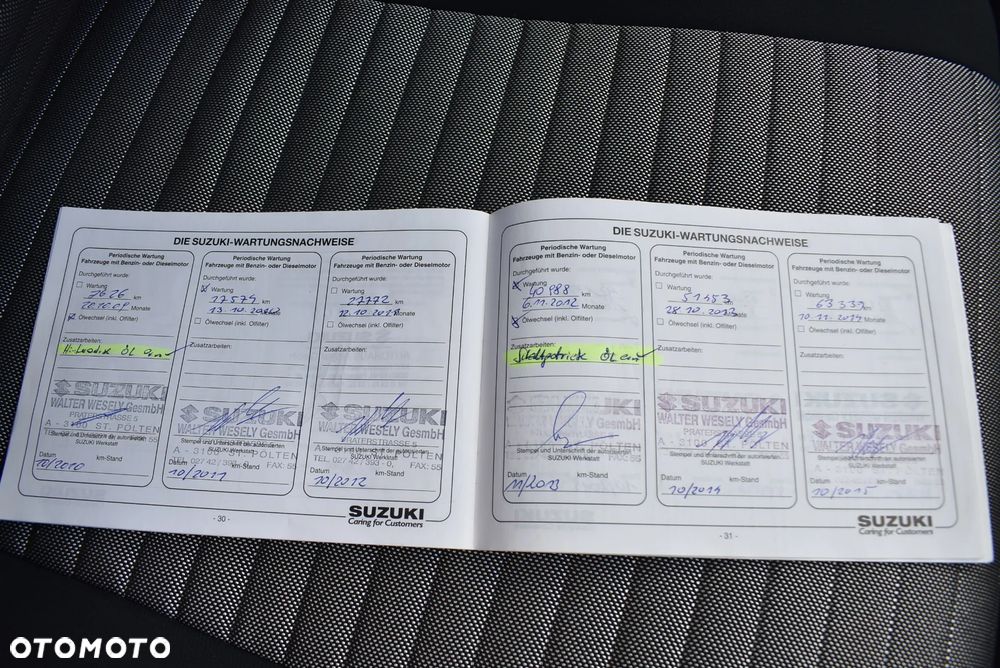 DIE SUZUKI-WARTUNGSNACHWEISE
Periodische Wartung
Fahrzeuge mit Benzin- oder Dieselmotor
Durchgeführt wurde:
Wartung
7626 km
Monate
Ölwechsel (inkl. Ölfilter)
Zusatzarbeiten:
SUZUKI
WALTER WESELY GesmbH
PRATERSTRASSE 5
A - 3100 ST. PÖLTEN
Stempel und Unterschrift der autorisierten
SUZUKI Werkstatt
Datum km-Stand
10/2010
Periodische Wartung
Fahrzeuge mit Benzin- oder Dieselmotor
Durchgeführt wurde:
Wartung
17579 km
13.10. Monate
Ölwechsel (inkl. Ölfilter)
Zusatzarbeiten:
SUZUKI
WALTER WESELY GesmbH
Stempel und Unterschrift der autorisierten
SUZUKI Werkstatt
Datum km-Stand
10/2011
Periodische Wartung
Fahrzeuge mit Benzin- oder Dieselmotor
Durchgeführt wurde:
Wartung
km
12.10.2011 Monate
Ölwechsel (inkl. Ölfilter)
Zusatzarbeiten:
SUZUKI
WALTER WESELY GesmbH
PRATERSTRASSE 5
Stempel und Unterschrift der autorisierten
SUZUKI Werkstatt
Datum km-Stand
10/2012
- 30 -
SUZUKI
Caring for Customers
DIE SUZUKI-WARTUNGSNACHWEISE
Periodische Wartung
Fahrzeuge mit Benzin- oder Dieselmotor
Durchgeführt wurde:
Wartung
40988 km
6.11.2012 Monate
Ölwechsel (inkl. Ölfilter)
Zusatzarbeiten:
Stempel und Unterschrift der autorisierten
SUZUKI Werkstatt
Datum km-Stand
11/2013
Periodische Wartung
Fahrzeuge mit Benzin- oder Dieselmotor
Durchgeführt wurde:
Wartung
51453 km
28.10.2013 Monate
Ölwechsel (inkl. Ölfilter)
Zusatzarbeiten:
SUZUKI
WALTER WESELY GesmbH
Stempel und Unterschrift der autorisierten
SUZUKI Werkstatt
Datum km-Stand
10/2014
Periodische Wartung
Fahrzeuge mit Benzin- oder Dieselmotor
Durchgeführt wurde:
Wartung
63339 km
10.11.2014 Monate
Ölwechsel (inkl. Ölfilter)
Zusatzarbeiten:
SUZUKI
WALTER WESELY GesmbH
Stempel und Unterschrift der autorisierten
SUZUKI Werkstatt
Datum km-Stand
10/2015
- 31 -
SUZUKI
Caring for Customers
OTOMOTO